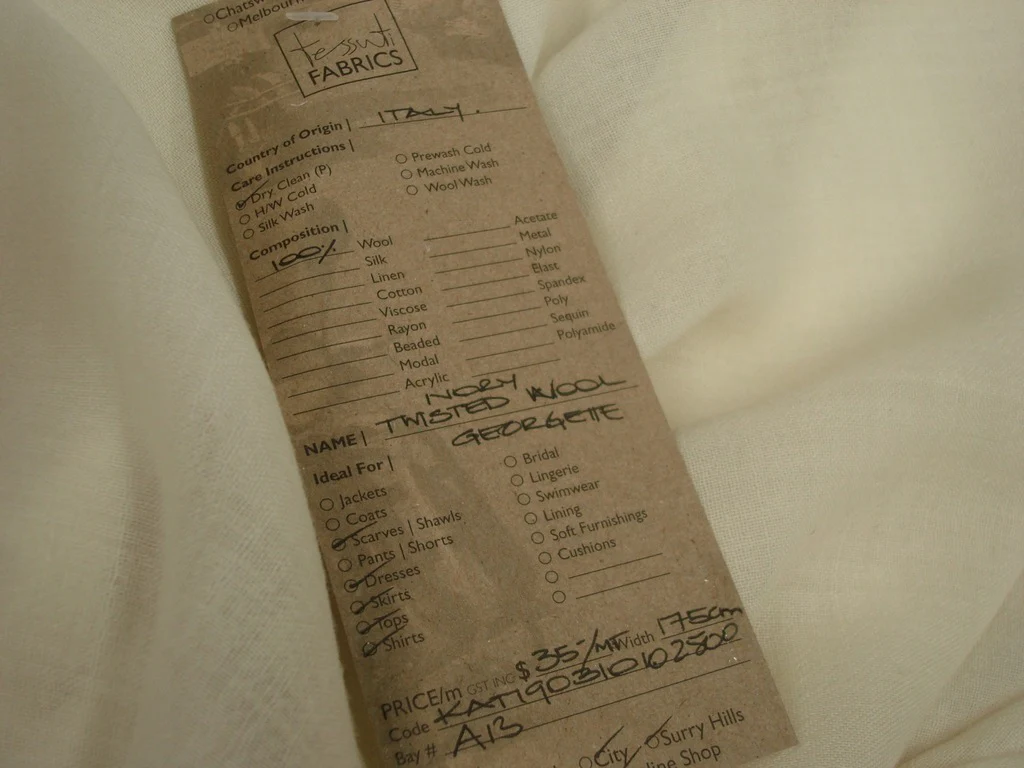 Chatsw
Melbourn
tessuti
FABRICS
Country of Origin | ITALY.
Care Instructions |
Dry Clean (P)
H/W Cold
Silk Wash
Prewash Cold
Machine Wash
Wool Wash
Composition |
100% Wool
Silk
Linen
Cotton
Viscose
Rayon
Beaded
Modal
Acrylic
Acetate
Metal
Nylon
Elast
Spandex
Poly
Sequin
Polyamide
IVORY
NAME | TWISTED WOOL
GEORGETTE
Ideal For |
Jackets
Coats
Scarves | Shawls
Pants | Shorts
Dresses
Skirts
Tops
Shirts
Bridal
Lingerie
Swimwear
Lining
Soft Furnishings
Cushions
PRICE/m GST INC $ 35-/MT Width 175cm
Code KAT190310102500
Bay # A13
City Surry Hills
line Shop